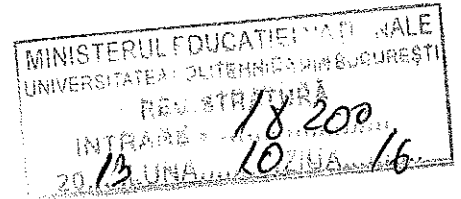 MINISTERUL EDUCAȚIEI NAȚIONALE
UNIVERSITATEA POLITEHNICA DIN BUCUREȘTI
REGISTRATURĂ
INTRARE 18200
20 13 LUNA 10 ZIUA 16